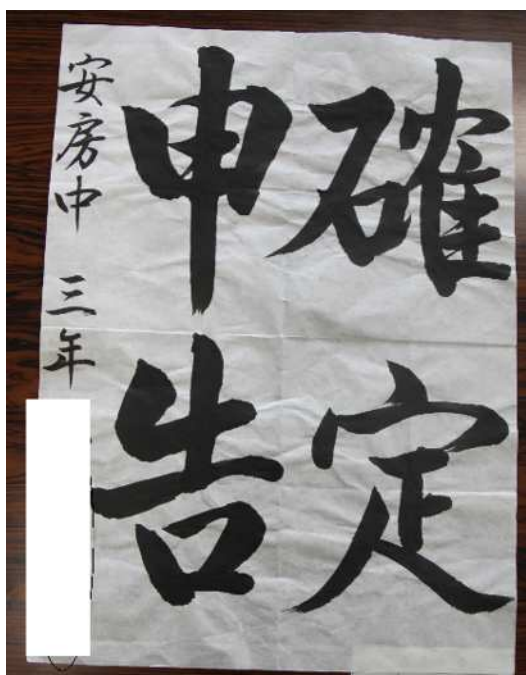 確定
申告
安房中 三年